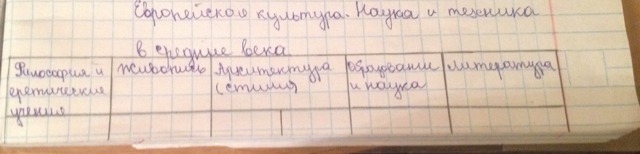 Европейская культура. Наука и техника
в средние века
Философия и еретические учения
Живопись
Архитектура (стили)
Образование и наука
Литература